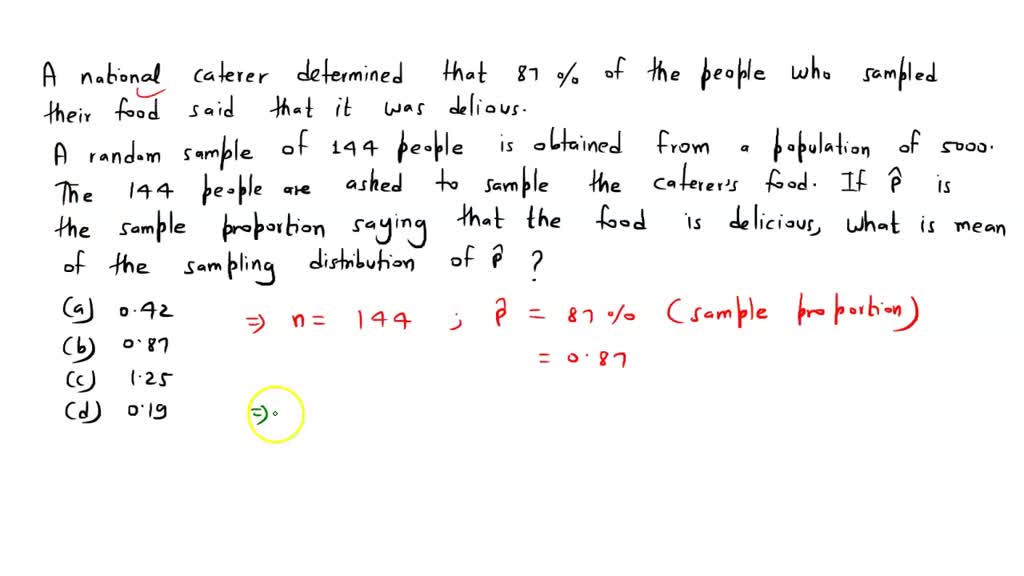 A national caterer determined that 87 % of the people who sampled
their food said that it was delious.
A random sample of 144 people is obtained from a population of 5000.
The 144 people are asked to sample the caterer's food. If p̂ is
the sample proportion saying that the food is delicious, what is mean
of the sampling distribution of p̂ ?
(a) 0.42
⇒ n = 144 ; p̂ = 87% (sample proportion)
(b) 0.87
= 0.87
(c) 1.25
(d) 0.19
⇒